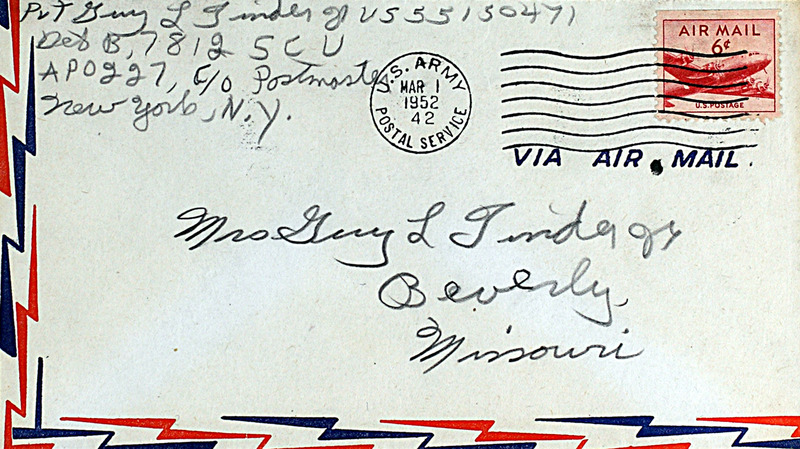 Pvt Guy L Tinder jr US55150471
Det B, 7812 SCU
APO 227, c/o Postmaster
New York, N.Y.
U.S. ARMY
MAR 1
1952
42
POSTAL SERVICE
AIR MAIL
6¢
U.S. POSTAGE
VIA AIR MAIL
Mrs Guy L Tinder jr
Beverly,
Missouri